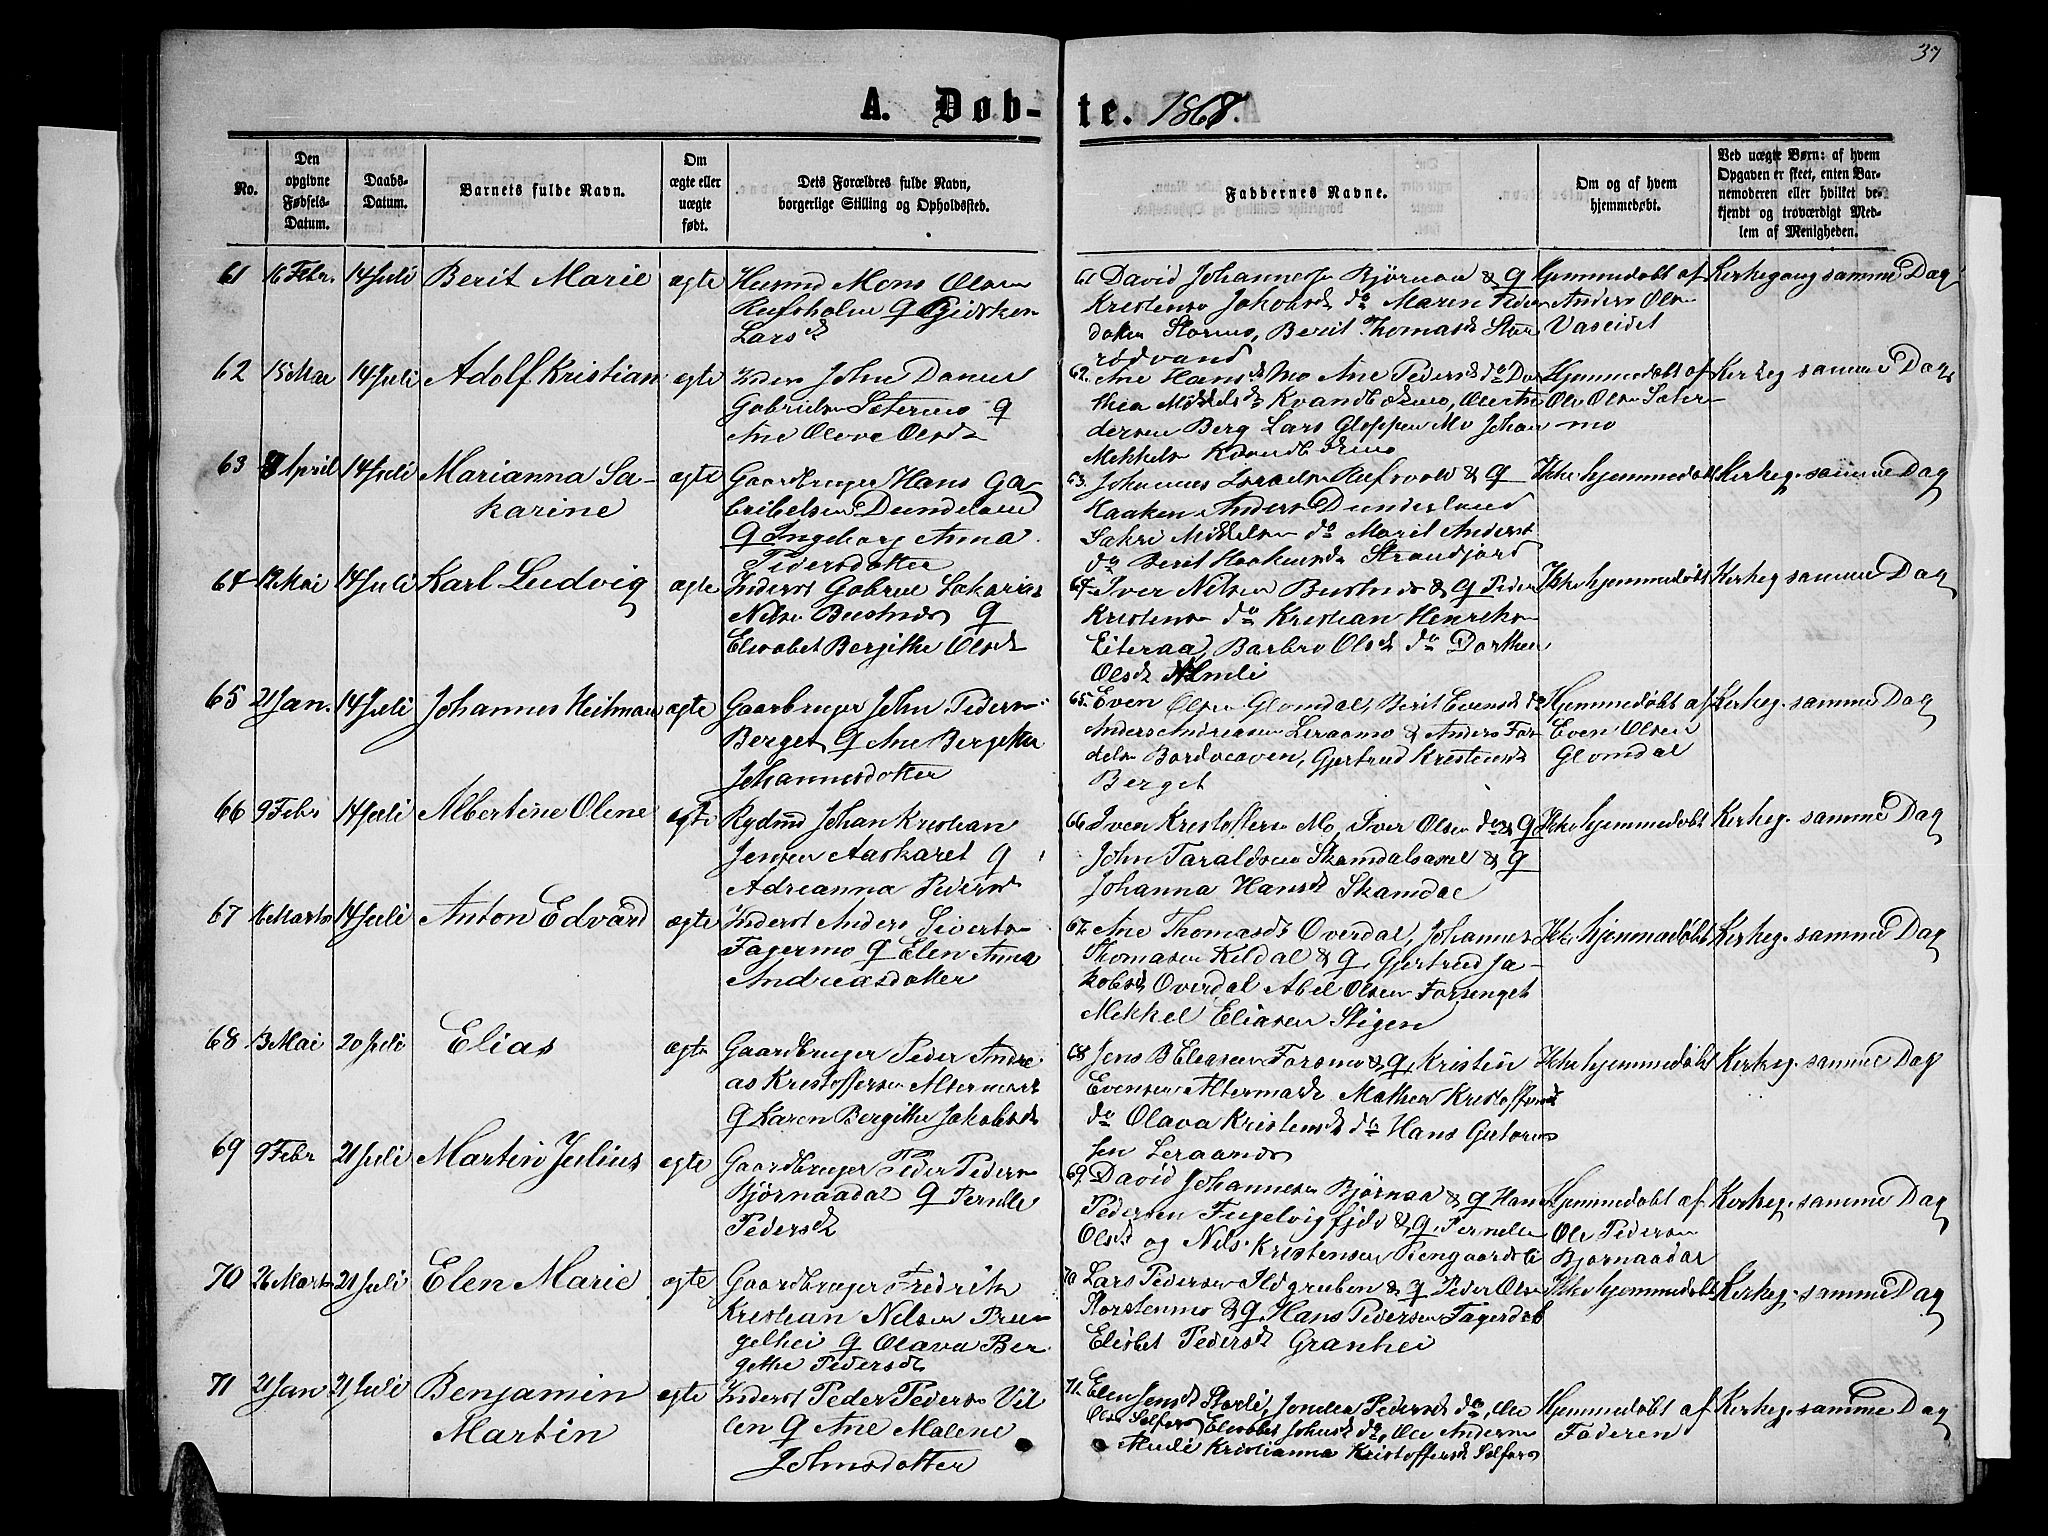 37
A. Døbte. 1867.
No.
Den opgivne Fødsels-Datum.
Daabs-Datum.
Barnets fulde Navn.
Om ægte eller uægte født.
Dets Forældres fulde Navn, borgerlige Stilling og Opholdssted.
Faddernes Navne.
Om og af hvem hjemmedøbt.
Ved uægte Børn: af hvem Opgaven er skeet, enten Barnemoderen eller hvilket bekjendt og troværdigt Medlem af Menigheden.
61 16 Febr. 14 Juli Berit Marie ægte Husmd Mons Olsen
Lars d
61 David Johannesen Bjørnaa & Q
Kristense Jakobsd do Maren Peders
datter Stormo, Berit Thomasd Stor
rødvand
Hjemmedøbt af
Anders Olsen
Vaseidet
Kirkegang samme Dag
62 15 Mai 14 Juli Adolf Kristian ægte Inders John Danie
Gabrielsen Sætermo Q
Ane Olava Olsd
62. Ane Hansd Mo Ane Pedersd do
dersen Berg Lars Gloppen Mo Johan
Mekkels
Hjemmedøbt af
Ole Olsen Sæter
mo
Kirkeg samme Dag
63 April 14 Juli Marianna Sa-
karine
ægte Gaardbruger Hans Ga
brielsen Dunderland
Q Ingeborg Anna
Pedersdotter
63. Johannes
Haaken Anders Dunderland
Sakri Mikkelsen do Marit Andersd
do Berit Haakensd Strandjord
Ikke hjemmedøbt Kirkeg. samme Dag
64 Mai 14 Juli Karl Ludvig ægte Inderst Gabriel Sakarias
Nilsen Q
Elisabet Bergitte Olsd
64. Iver Nilsen & Q Peder
Kristensen do Kristian Henriks
Eiteraa, Barbro Olsd do Dorthea
Olsd Almli
Ikke hjemmedøbt Kirkeg samme Dag
65 21 Jan. 14 Juli Johannes Heitman ægte Gaarbruger John Peders
Berget Q Ane Bergitte
Johannesdotter
65. Even Olsen Glomdal, Berit Evensd do
Anders Andreasen Leraamo & Anders For
delsen Gjertrud Kristensd
Berget
Hjemmedøbt af
Even Olsen
Glomdal
Kirkeg. samme Dag
66 9 Febr 14 Juli Albertine Olene egte Rydmd Johan Kristian
Jensen Aaskaret Q
Adrianna Pedersd
66. Iven Kristoffersen Mo, Iver Olsen do & Q
John Taraldsen & Q
Johanna Hansd Skamdal
Ikke hjemmedøbt Kirkeg. samme Dag
67 16 Marts 14 Juli Anton Edvard ægte Inderst Anders Siverts
Fagermo Q Elen Anna
Andreasdotter
67. Ane Thomasd Overdal, Johannes
Thomasen Kildal & Q, Gjertrud Ja-
kobsd Overdal Abel Olsen Forsenget
Mekkel Eliasen Stigen
Ikke hjemmedøbt Kirkeg. samme Dag
68 13 Mai 20 Juli Elias ægte Gaardbruger Peder Andre
as Kristoffersen Altermark
Q Karen Bergitte Jakobsd
68 Jens B Eliasen Forsmo & Q, Kristen
Evensen Altermark Mathea Kristoffersd
do Olava Kristensd do Hans Gutorm
sen Leraand
Ikke hjemmedøbt Kirkeg. samme Dag
69 9 Febr 21 Juli Martin Julius egte Gaardbruger Peder Peders
Bjørnaadal Q Pernelle
Pedersd
69. David Johannesen Bjørnaa & Q Hans
Pedersen Fugelvigfjeld & Q, Pernelle
Olsd og Nils Kristensen
Hjemmedøbt af
Ole Pedersen
Bjørnaadal
Kirkeg. samme Dag
70 26 Marts 21 Juli Elen Marie egte Gaardbruger Fredrik
Kristian Nilsen Pruu-
gelhei Q Olava Ber
gitte Pedersd
70 Lars Pedersen Ildgruben & Q Peder Olsen
Storstenmo & Q, Hans Pedersen Fagerdal
Elisbet Pedersd Granhei
Ikke hjemmedøbt Kirkeg. samme Dag
71 21 Jan 21 Juli Benjamin
Martin
egte Inderst Peder Peders Vil
len Q Ane Malene
Johnsdotter
71. Elen Jensd Storli, Jondea Pedersd do, Ole
Olsen Selfors, Elisabet Johnsd do, Ole Anders
Kristianna Kristoffersd Selfors
Hjemmedøbt af
Faderen
Kirkeg. samme Dag